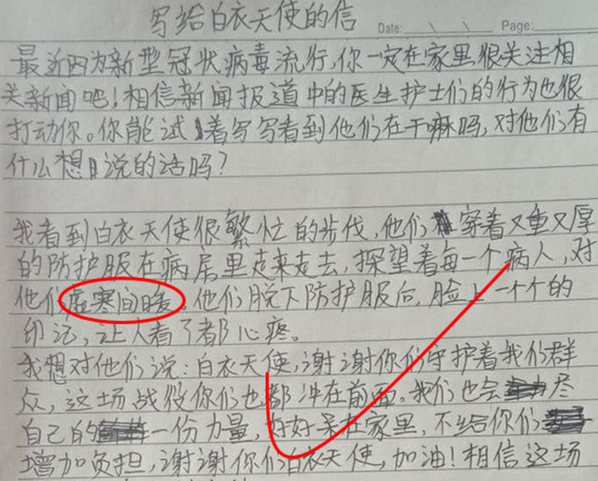 写给白衣天使的信
Date: Page:
最近因为新型冠状病毒流行,你一定在家里很关注相
关新闻吧!相信新闻报道中的医生护士们的行为也很
打动你。你能试着写写看到他们在干嘛吗,对他们有
什么想说的话吗?
我看到白衣天使很繁忙的步伐,他们穿着又重又厚
的防护服在病房里走来走去,探望着每一个病人,对
他们虚寒问暖。他们脱下防护服后,脸上一个个的
印记,让人看了都心疼。
我想对他们说:白衣天使,谢谢你们守护着我们群
众,这场战役你们也都冲在前面。我们也会尽
自己的一份力量,好好呆在家里,不给你们
增加负担,谢谢你们白衣天使,加油!相信这场